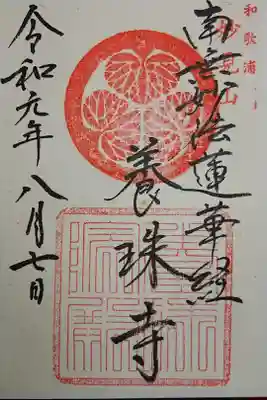 和歌浦
妙見山
南無妙法蓮華経
養珠寺
令和元年八月七日